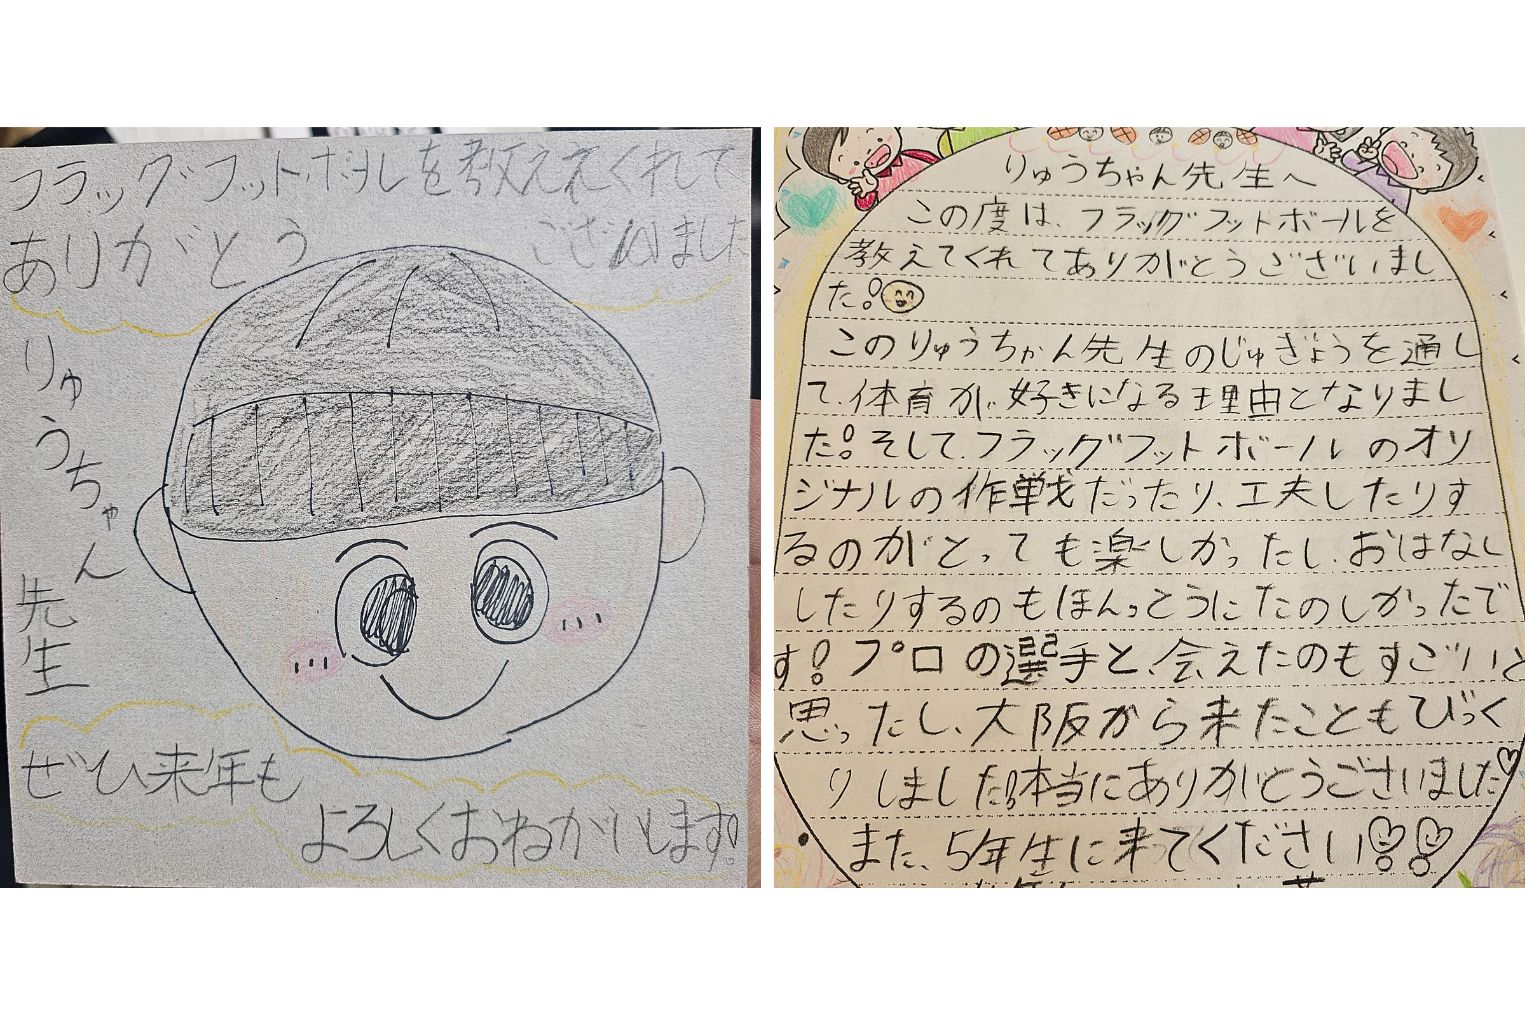 フラッグフットボールを教えてくれて
ありがとう
ございました
りゅうちゃん
先生
ぜひ来年も
よろしくおねがいします!
りゅうちゃん先生へ
この度は、フラッグフットボールを
教えてくれてありがとうございまし
た!
このりゅうちゃん先生のじゅぎょうを通し
て、体育が好きになる理由となりまし
た!そして、フラッグフットボールのオリ
ジナルの作戦だったり、工夫したりす
るのがとっても楽しかったし、おはなし
したりするのもほんっとうにたのしかったで
す!プロの選手と、会えたのもすごいと
思ったし、大阪から来たこともびっく
りしました!本当にありがとうございました
また、5年生に来てください!!